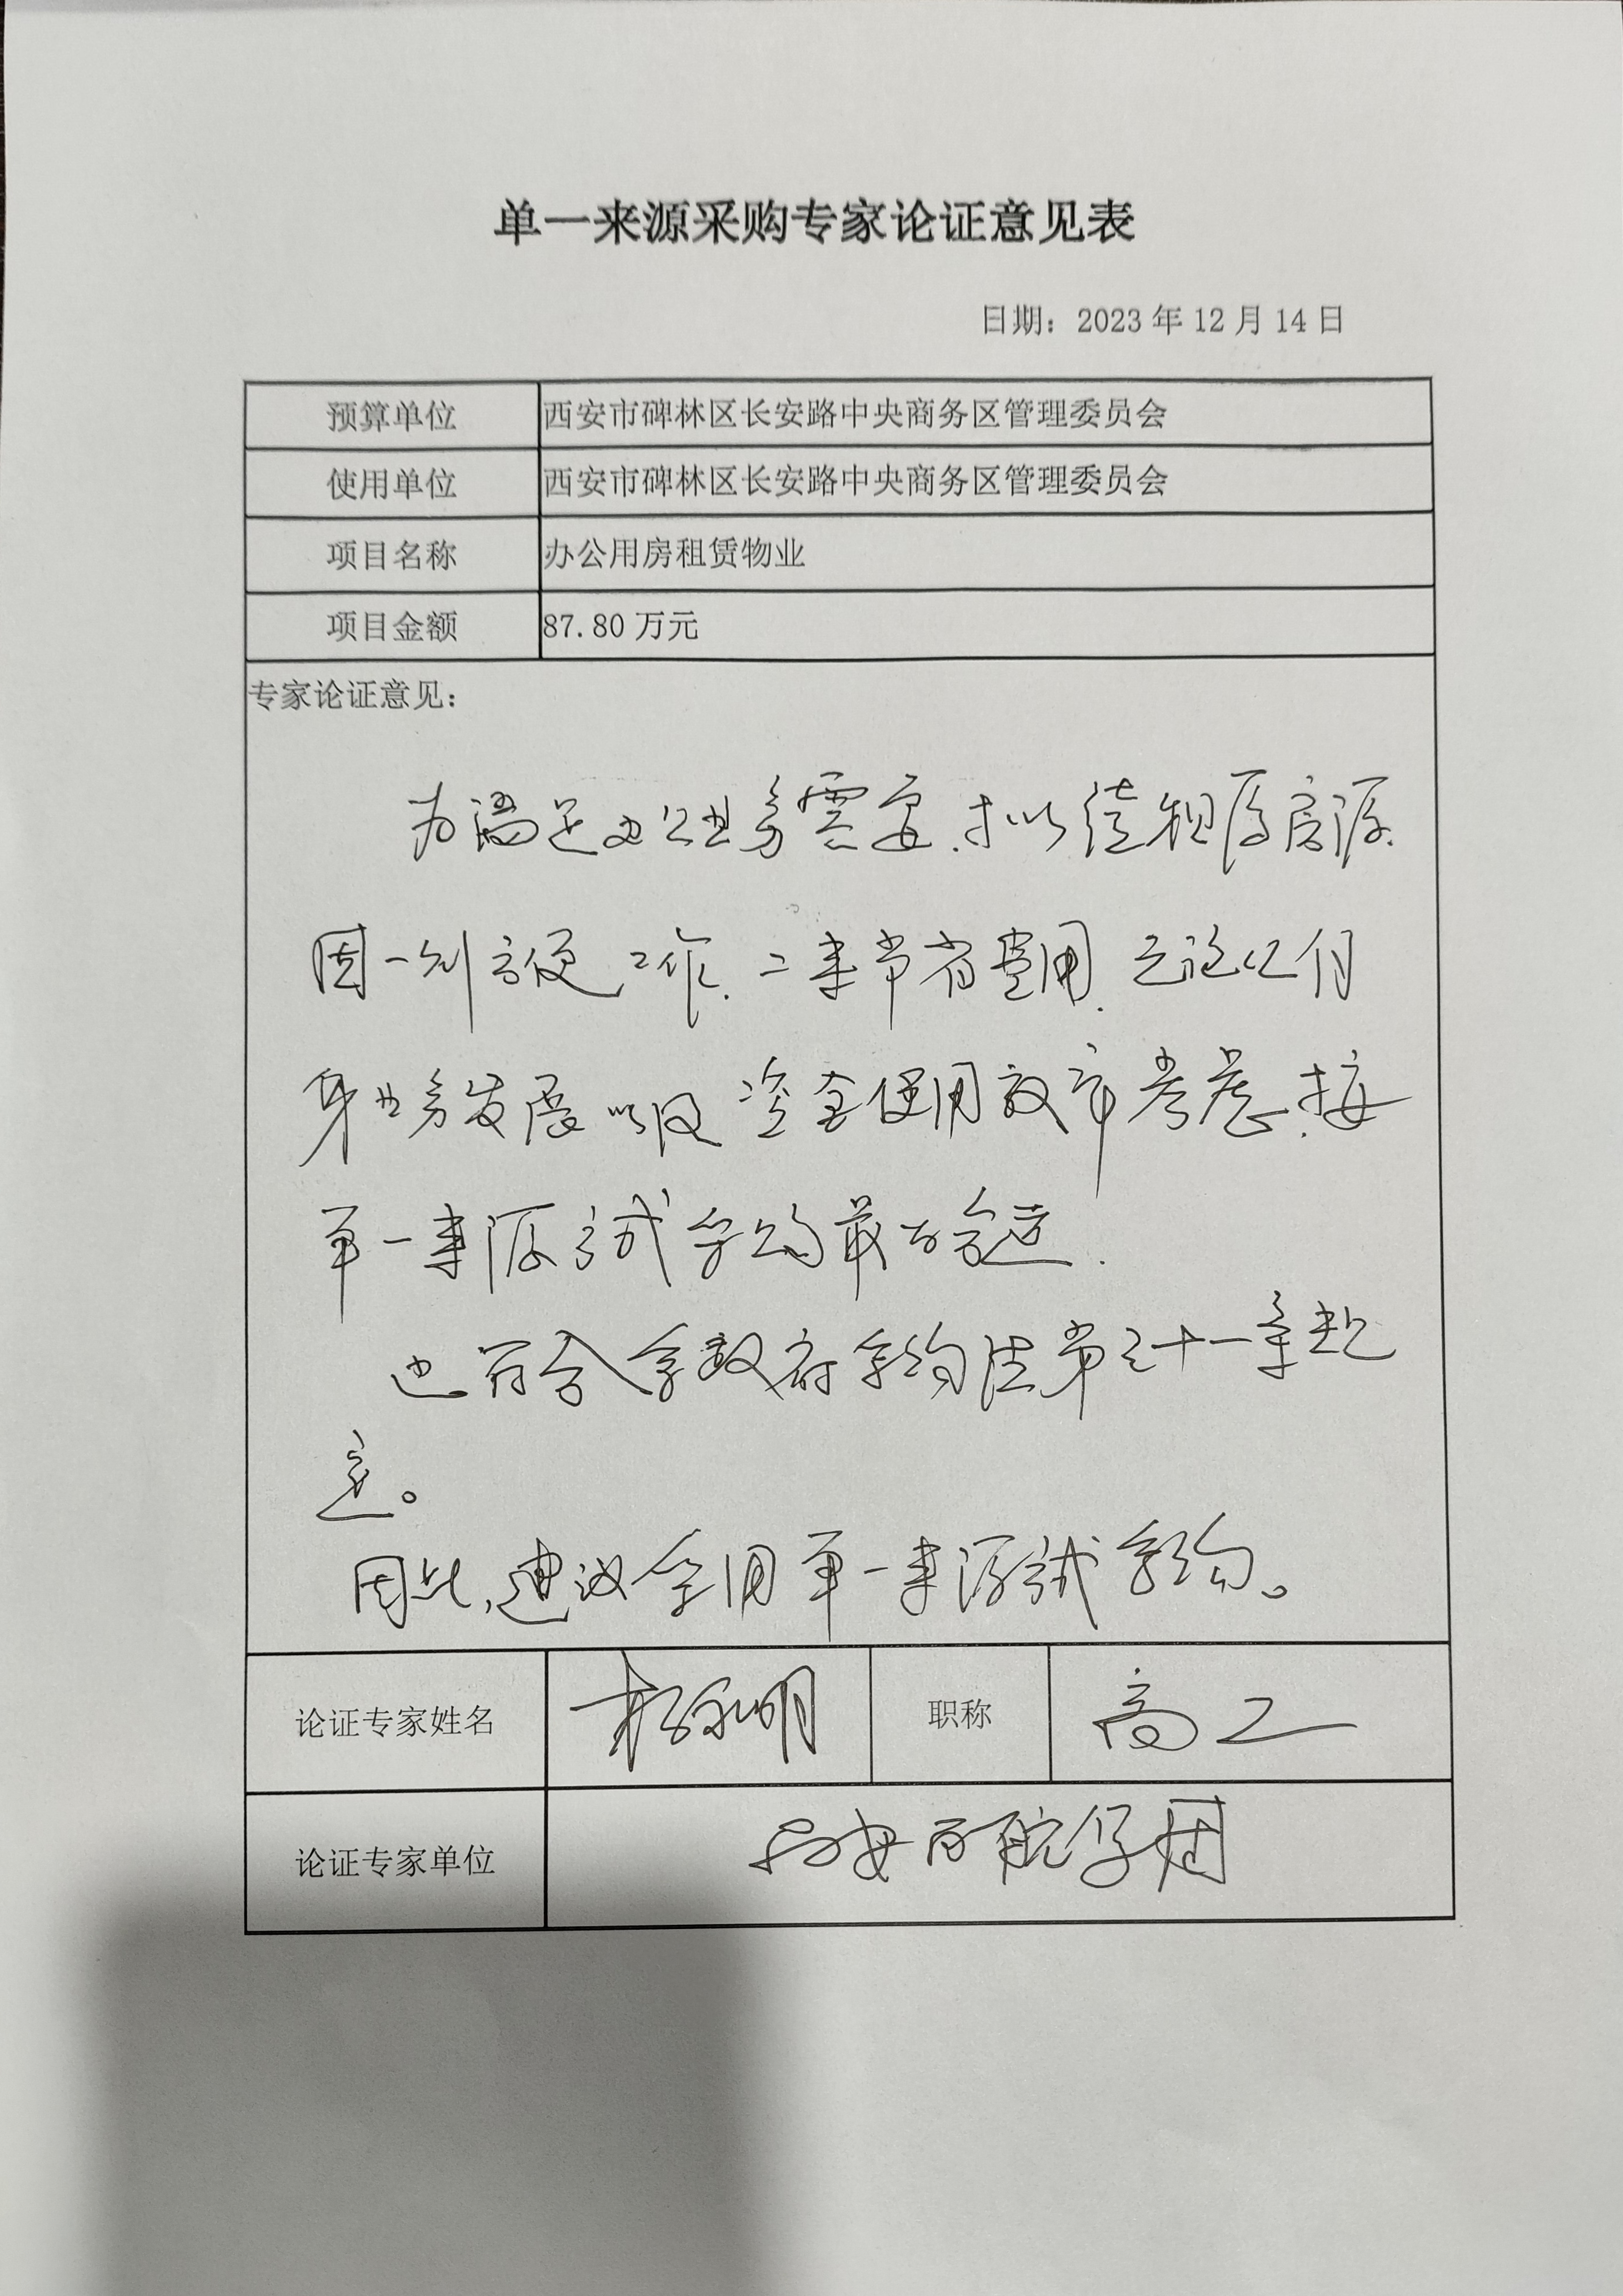 单一来源采购专家论证意见表
日期：2023年12月14日
预算单位 西安市碑林区长安路中央商务区管理委员会
使用单位 西安市碑林区长安路中央商务区管理委员会
项目名称 办公用房租赁物业
项目金额 87.80万元
专家论证意见：
为满足办公业务需要，拟续租原房源，
因一则方便工作，二来节省费用，
业务发展以及资金使用效率考虑，按
单一来源方式采购最为合适．
也符合政府采购法第三十一条规
定。
因此，建议采用单一来源方式采购。
论证专家姓名 明 职称 高工
论证专家单位 西安西航集团